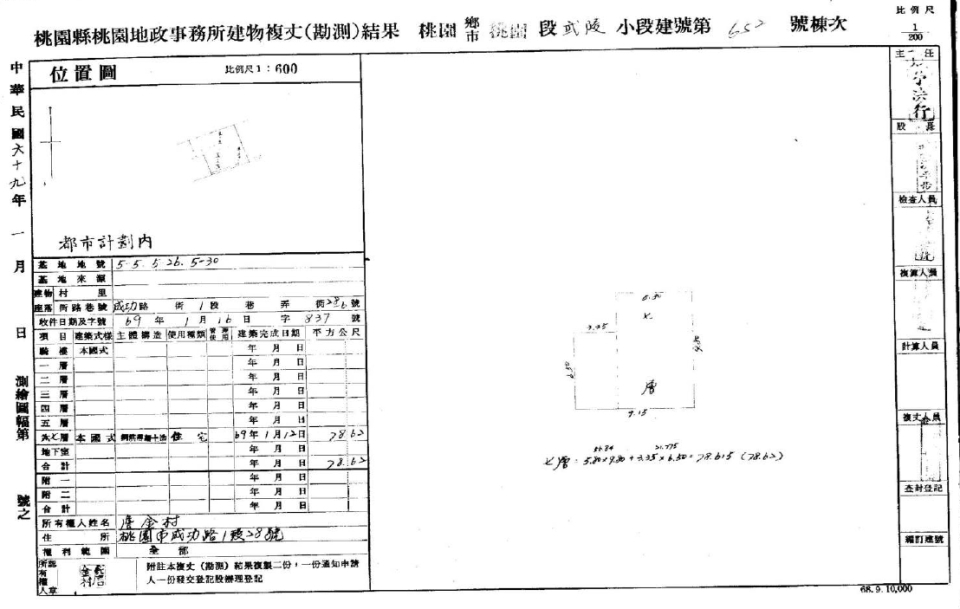 桃園縣桃園地政事務所建物複丈(勘測)結果 桃園 鄉市 桃園 段 武陵 小段建號第 652 號棟次
比例尺 1/200
中華民國六十九年一月 日 測繪圖幅第 號之
位置圖 比例尺1:600
都市計劃內
基地地號 5-5. 5-26. 5-30
基地來源
建物座落 村里
所路巷號 成功路 街 1 段 巷 弄 街28-6號
收件日期及字號 69 年 1 月 16 日 字 837 號
項目 建築式樣 主體構造 使用種類 建築完成日期 平方公尺
騎樓 本國式 年 月 日
一層 年 月 日
二層 年 月 日
三層 年 月 日
四層 年 月 日
五層 年 月 日
六七層 本國式 住宅 69年1月12日 78.62
地下室 年 月 日
合計 年 月 日 78.62
附一 年 月 日
附二 年 月 日
合計 年 月 日
所有權人姓名
住所 桃園市成功路1段28號
權利範圍 全部
所有權人章
附註本複丈(勘測)結果複製二份,一份通知申請
人一份發交登記股辦理登記
七
層
3.35
6.50
9.15
86.84 21.775
七層=5.80×9.80+3.35×6.50=78.615(78.62)
主任
股長
檢查人員
複算人員
計算人員
複丈人員
查封登記
編訂建號
68.9.10,000